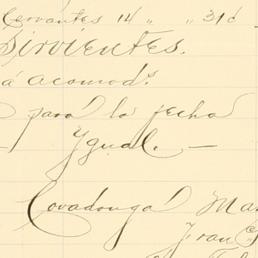 Cervantes 14 " " 31 d
Sirvientes.
á acomod.ˢ
para la fecha
Ygual. —
Covadonga Mar
Fran